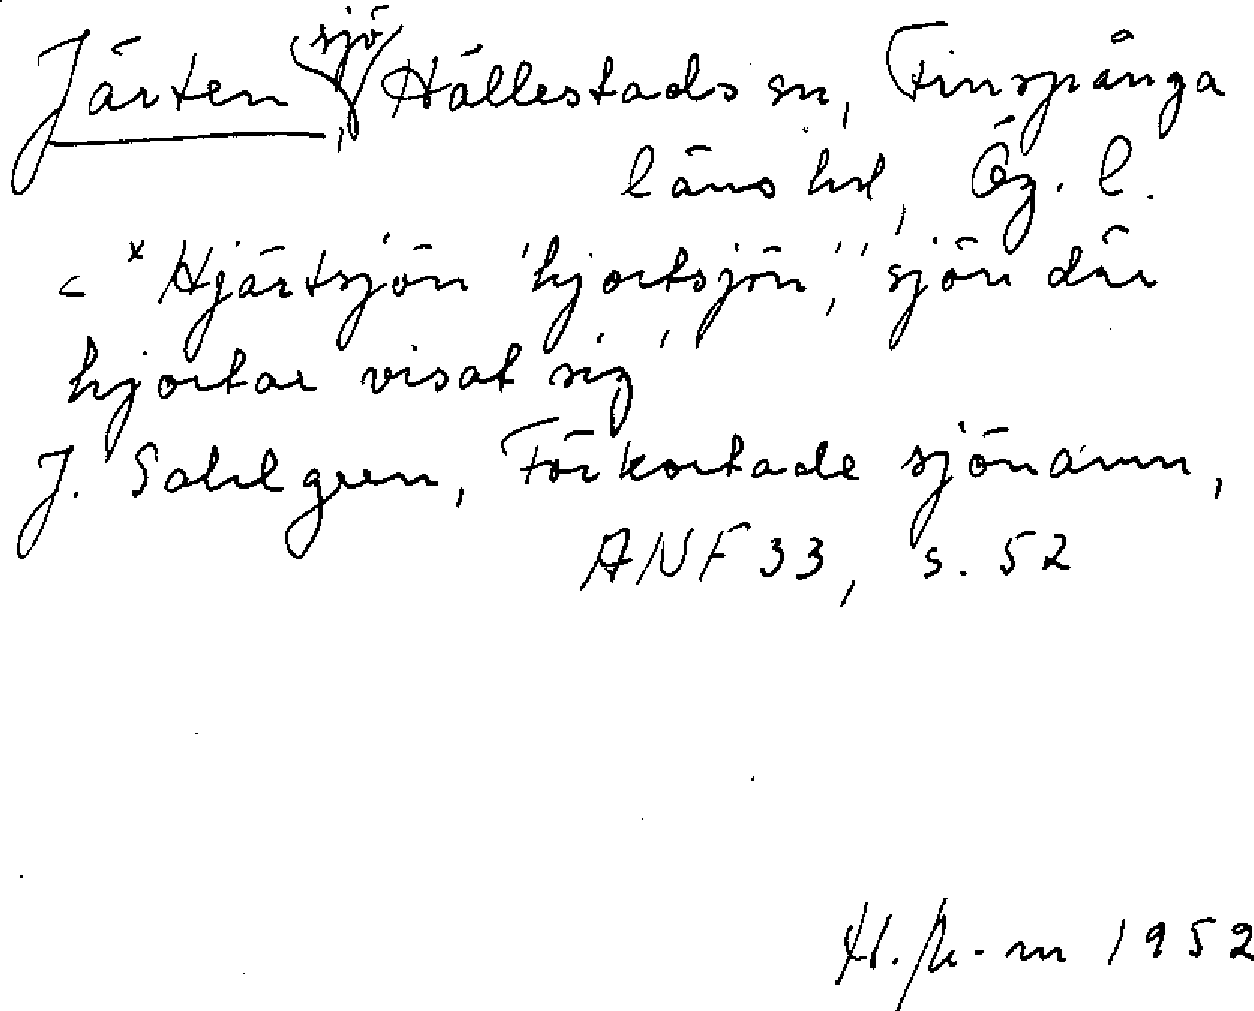 Järten, sjö, Hällestads sn, Finspånga
läns hd, Ög. l.
< *Hjärtsjön 'hjortsjön', 'sjön där
hjortar visat sig'
J. Sahlgren, Förkortade sjönamn,
ANF 33, s. 52
1952